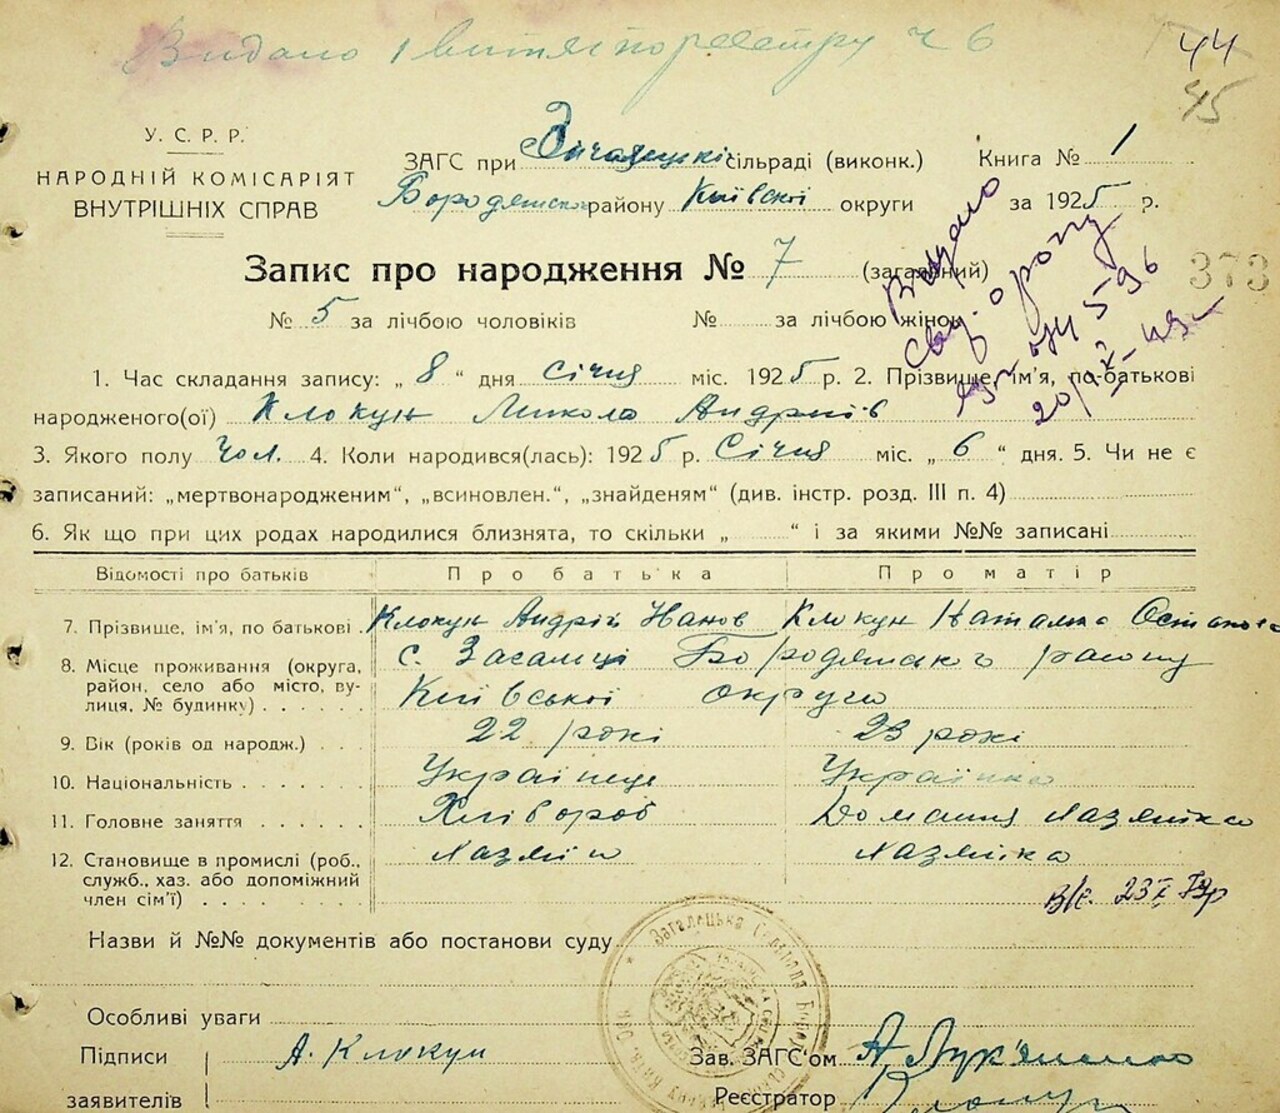 Видано 1 витяг по реєстру ч 6
44
45
У. С. Р. Р.
НАРОДНІЙ КОМІСАРІЯТ
ВНУТРІШНІХ СПРАВ
ЗАГС при сільраді (виконк.) Книга № 1
Бородянсько району Київської округи за 1925 р.
Запис про народження № 7 (загальний)
373
№ 5 за лічбою чоловіків № за лічбою жінок
Видано
1. Час складання запису: „ 8 “ дня січня міс. 1925 р. 2. Прізвище, ім'я, по-батькові
народженого(ої) Клокун Микола Андріїв
3. Якого полу Чол. 4. Коли народився(лась): 1925 р. Січня міс. „ 6 “ дня. 5. Чи не є
записаний: „мертвонародженим“, „всиновлен.“, „знайденям“ (див. інстр. розд. III п. 4)
6. Як що при цих родах народилися близнята, то скільки „ “ і за якими №№ записані
Відомості про батьків Про батька Про матір
7. Прізвище, ім'я, по батькові Клокун Андрій Иванов Клокун Наталка Остапова
8. Місце проживання (округа, район, село або місто, вулиця, № будинку) с. Загальці Бородянського району
Київської округи
9. Вік (років од народж.) 22 рокі 23 рокі
10. Національність Українець Українка
11. Головне заняття Хлівороб Домашня хазяйка
12. Становище в промислі (роб., служб., хаз. або допоміжний член сім'ї) хазяїн хазяйка
Назви й №№ документів або постанови суду
Загалецька Сільрада
Особливі уваги
Підписи А. Клокун Зав. ЗАГС'ом А Лук'яненко
заявителів Реєстратор